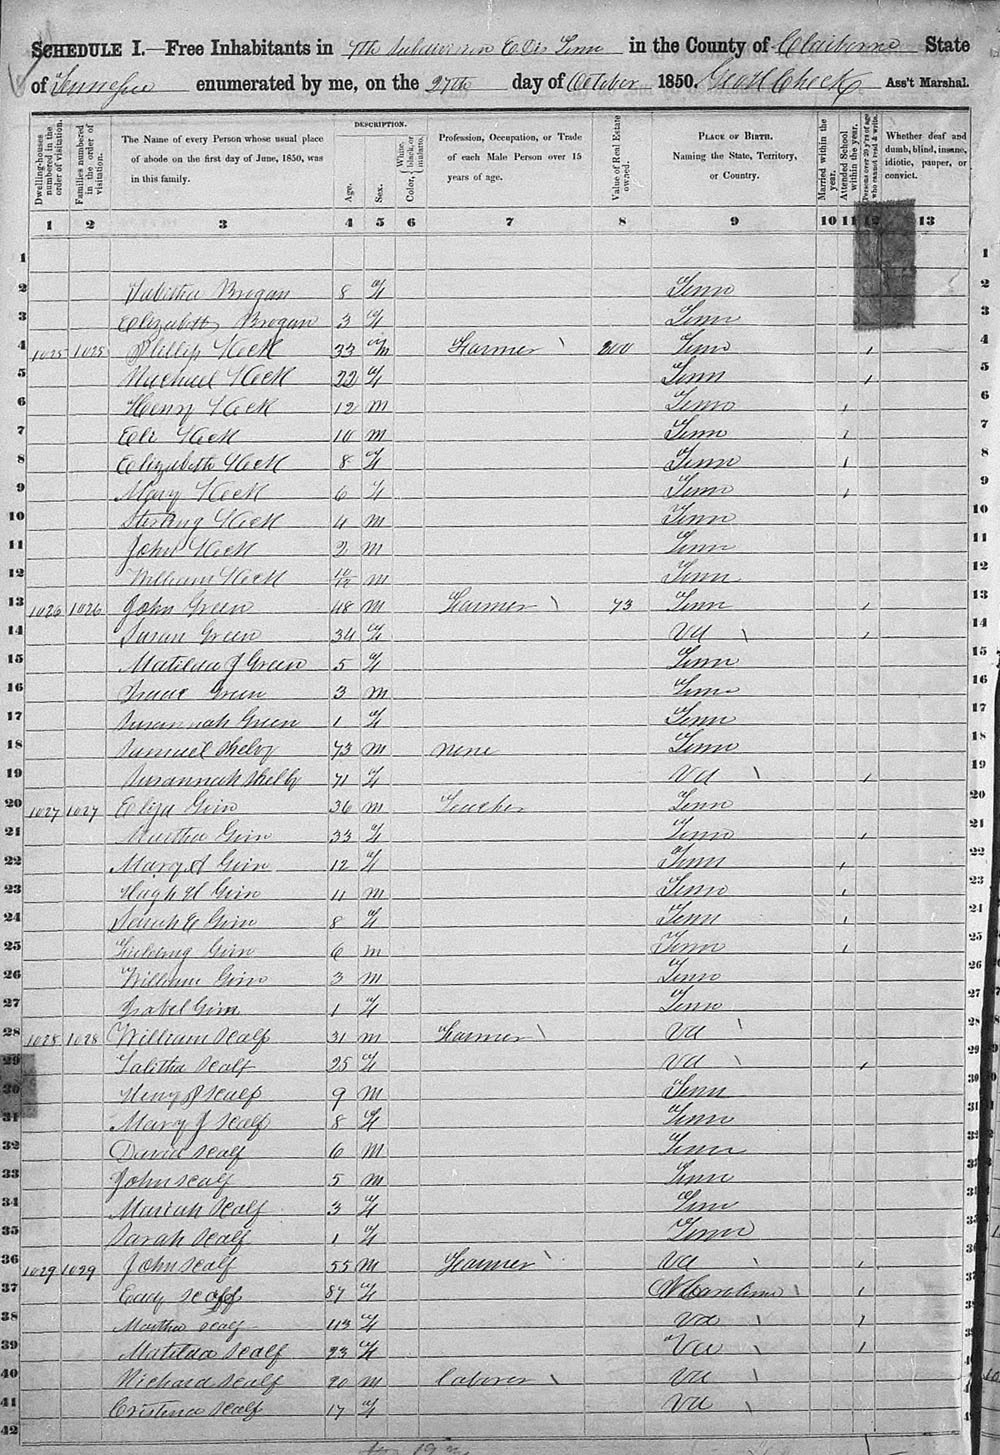 SCHEDULE I.—Free Inhabitants in 7th Subdivision E Dis Tenn in the County of Claiborne State
of Tennessee enumerated by me, on the 27th day of October 1850. Ass't Marshal.
Dwelling-houses numbered in the order of visitation.
Families numbered in the order of visitation.
The Name of every Person whose usual place of abode on the first day of June, 1850, was in this family.
DESCRIPTION.
Age.
Sex.
Color, White, black, or mulatto.
Profession, Occupation, or Trade of each Male Person over 15 years of age.
Value of Real Estate owned.
PLACE OF BIRTH. Naming the State, Territory, or Country.
Married within the year.
Attended School within the year.
Persons over 20 y'rs of age who cannot read & write.
Whether deaf and dumb, blind, insane, idiotic, pauper, or convict.
1 2 3 4 5 6 7 8 9 10 11 12 13
1 1
2 Tabitha Brogan 8 F Tenn 2
3 Elizabeth Brogan 3 F Tenn 3
4 1025 1025 Phillip Keck 33 M Farmer 200 Tenn 1 4
5 Keck 22 F Tenn 1 5
6 Henry Keck 12 M Tenn 1 6
7 Eli Keck 10 M Tenn 1 7
8 Elizabeth Keck 8 F Tenn 1 8
9 Mary Keck 6 F Tenn 1 9
10 Sterling Keck 4 M Tenn 10
11 John Keck 2 M Tenn 11
12 William Keck M Tenn 12
13 1026 1026 John Green 48 M Farmer 73 Tenn 1 13
14 Susan Green 34 F Va 1 14
15 Matilda J Green 5 F Tenn 15
16 Isaac Green 3 M Tenn 16
17 Susannah Green 1 F Tenn 17
18 Samuel Shelby 73 M none Tenn 18
19 Susannah Shelby 71 F Va 1 19
20 1027 1027 Eliza Goin 36 M Teacher Tenn 20
21 Martha Goin 33 F Tenn 1 21
22 Mary A Goin 12 F Tenn 1 22
23 Hugh H Goin 11 M Tenn 1 23
24 Sarah E Goin 8 F Tenn 1 24
25 Fielding Goin 6 M Tenn 1 25
26 William Goin 3 M Tenn 26
27 Isabel Goin 1 F Tenn 27
28 1028 1028 William Scalf 31 M Farmer Va 28
29 Talitha Scalf 25 F Va 1 29
30 Henry Scalf 9 M Tenn 30
31 Mary J Scalf 8 F Tenn 31
32 David Scalf 6 M Tenn 32
33 John Scalf 5 M Tenn 33
34 Mariah Scalf 3 F Tenn 34
35 Sarah Scalf 1 F Tenn 35
36 1029 1029 John Scalf 55 M Farmer Va 1 36
37 Scalf F N Carolina 1 37
38 Martha Scalf F Va 1 38
39 Matilda Scalf 23 F Va 1 39
40 Richard Scalf 20 M laborer Va 40
41 Cristena Scalf 17 F Va 41
42